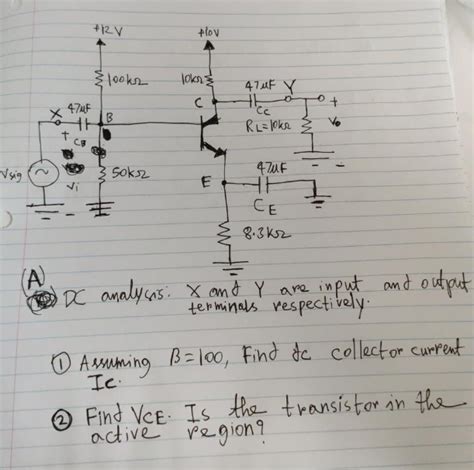 +12V +10V
100kΩ 10kΩ 47μF Y
C +
X 47μF B Cc
+ CB RL=10kΩ Vo
Vsig Vi 50kΩ 47μF
E
CE
8.3kΩ
(A)
DC analysis: X and Y are input and output
terminals respectively.
① Assuming β=100, Find dc collector current
Ic.
② Find VCE. Is the transistor in the
active region?